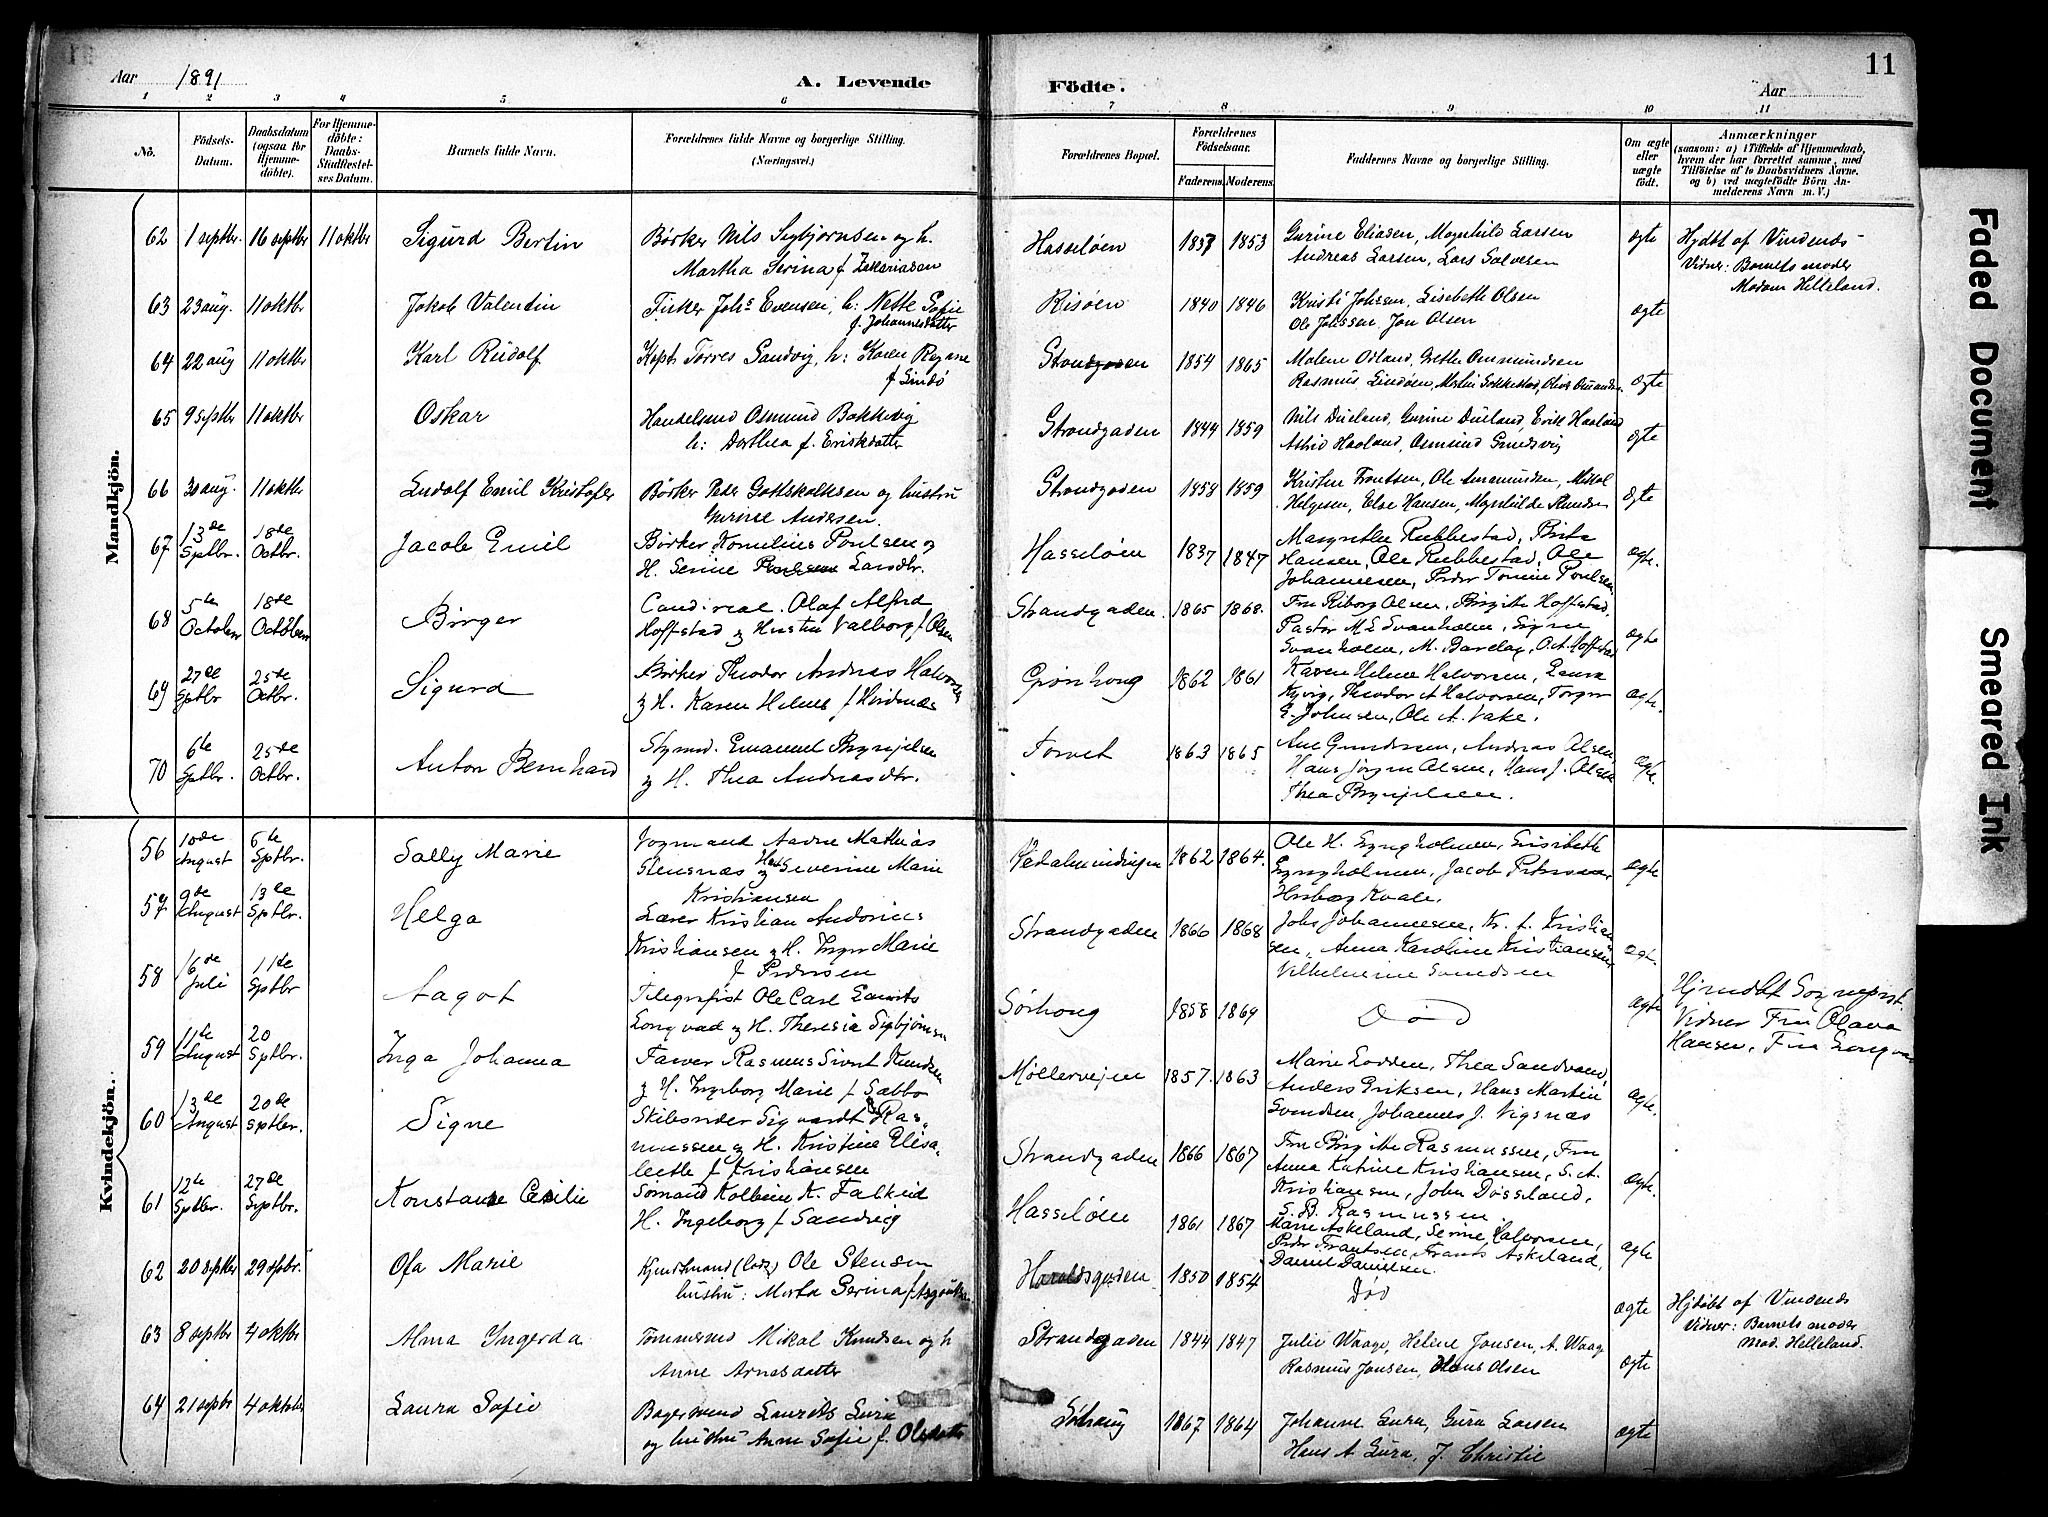 Aar 1891
A. Levende
Födte.
11
Aar
1 2 3 4 5 6 7 8 9 10 11
No.
Födsels-Datum.
Daabsdatum (ogsaa for Hjemme-döbte).
For Hjemme-döbte: Daabs-Stadfæstel-ses Datum.
Barnets fulde Navn.
Forældrenes fulde Navne og borgerlige Stilling. (Næringsvei.)
Forældrenes Bopæl.
Forældrenes Födselsaar.
Faderens. Moderens.
Faddernes Navne og borgerlige Stilling.
Om ægte eller uægte födt.
Anmærkninger
(saasom: a) i Tilfælde af Hjemmedaab, hvem der har forrettet samme, med Tilföielse af to Daabsvidners Navne, og b) ved uægtefödte Börn An-melderens Navn m. V.)
Mandkjön.
62 1 septbr. 16 septbr 11 oktbr Sigurd Bertin Börker Nils Sigbjørnsen og h.
Martha Serina f Zakariasen
Hasseløen 1853 1853 Gurine Eliasen, Magnhild Larsen
Andreas Larsen, Lars Salvesen
ægte Hjdøbt af Vindenæs
Vidner: Barnets moder
Madam Helleland.
63 23 aug. 11 oktbr Jakob Valentin Fisker Johs Evensen, h: Nette Sofie
f. Johannesdatter
Risøen 1840 1846 Kristi Johssen, Lisebeth Olsen
Ole Johssen, Jon Olsen
ægte
64 22 aug 11 oktbr Karl Rudolf Kapt. Tørres Sandvig, h: Karen Regine
f Lindø
Strandgaden 1854 1865 Malene Osland, Grethe Ommundsen
Rasmus Lindøen, Martin
ægte
65 9 septbr 11 oktbr Oskar Handelsmd Osmund Bokkevig
h: Dorthea f. Eriksdatter
Strandgaden 1844 1859 Nils Dueland, Gurine Dueland, Erik Haaland
Astrid Haaland, Osmund Grindsvig
ægte
66 30 aug. 11 oktbr Ludolf Emil Kristofer Börker Peder Gottskalksen og hustru
Gurine Andersen.
Strandgaden 1858 1859 Kristen Frantsen, Ole Amundsen, Mikal
Helgesen, Else Hansen, Magnhilde Knudsen
ægte
67 13de Sptbr. 18de Octbr. Jacob Emil Børker Kornelius Poulsen og
H. Serine Larsdtr.
Hasseløen 1837 1847 Margrethe Rubbestad, Brita
Hansen, Ole Rubbestad, Ole
Johannesen, Peder Tomine Poulsen
ægte.
68 5te October 18de October Birger Cand. real. Olaf Alfred
Hoffstad og Hustru Valborg f Olsen
Strandgaden. 1865 1868. Fru Riborg Olsen, Birgitte Hoffstad.
Pastor M E Svanholm, Signe
Svanholm, M. Barclay, O.A. Hoffstad
ægte
69 27de Sptbr 25de Octbr. Sigurd Börker Theodor Andreas Halvorsen
og H. Karen Helene f Hindenæs
Grønhoug 1862 1861 Karen Helene Halvorsen, Laura
Kyvig, Theodor A Halvorsen, Torger
E. Johnsen, Ole A. Vake.
ægte.
70 6te Sptbr. 25de Octbr. Anton Bernhard Styrmd. Emanuel Brynjelsen
og H. Thea Andreasdtr.
Torvet 1863 1865 Ane Gundersen, Andreas Olsen,
Hans Jörgen Olsen, Hans J. Olsen
Thea Brynjelsen.
ægte.
Kvindekjön.
56 10de August 6te Sptbr. Sally Marie Vognmand Aadne Mathias
Stensnæs og Hustru Severine Marie
Kristiansen
1862 1864. Ole H. Lyngholmen, Elisabeth
Lyngholmen, Jacob Petersen
Herborg Kvale.
ægte
57 9de August 13de Sptbr. Helga Lærer Kristian Andorius
Kristiansen og H. Inger Marie
f Pedersen
Strandgaden 1866 1868 Johs Johannesen, Kr. A. Kristian
sen, Anna Karoline Kristiansen,
Vilhelmine Svendsen
ægte.
58 16de Juli 11te Sptbr Aagot Telegrafist Ole Carl Laurits
Longvad og H. Theresia Sigbjørnsen
Sørhoug 1858 1869 Död
ægte Hjemdöbt Sognepræst.
Vidner Fru Olava
Hansen, Fru Longvad
59 11te August 20 Sptbr. Inga Johanna Farver Rasmus Sivert Knudsen
og H. Ingeborg Marie f Sabbø
Møllervejen 1857. 1863 Marie Lodden, Thea Sandvand,
Anders Eriksen, Hans Martin
Svendsen, Johannes J. Vigsnæs
ægte.
60 13de August 20de Sptbr. Signe Skibsreder Sigvardt B Ras-
mussen og H. Kristine Elisa-
beth f Kristiansen
Strandgaden 1866 1867 Fru Birgitte Rasmussen, Fru
Anna Katrine Kristiansen, S. A.
Kristiansen, John Dösseland,
S. B. Rasmussen
ægte.
61 12te Sptbr. 27de Septbr. Konstanse Cesilie Sømand Kolbein K. Falkeid
H. Ingeborg f Sandvig
Hasseløen 1861 1867 Marie Askeland, Serine Halvorsen,
Peder Frantsen, Frants Askeland,
Daniel Danielsen.
ægte
62 20 septbr 29 spbr. Ofa Marie Kjendtmand (lods) Ole Stensen
hustru: Marta Serina f Asgautsen
Haraldsgaden 1850 1854 Død
ægte Hjdøbt af Vindenæs
Vidner: Barnets moder
Mad. Helleland.
63 8 septbr 4 oktbr Alma Ingerda Tømmermd Mikal Knudsen og h
Anne Arnesdatter
Strandgaden 1844 1847 Julie Waage, Helene Jonsen, A. Waage
Rasmus Jonsen, Hans Olsen
ægte
64 21 septbr 4 oktober Laura Sofie Bagersvend Laurits Lura
og hustru Anne Sofie f. Olsdatter
Sørhaug 1867 1864 Johanne Lura, Gura Larsen
Hans A Lura, J. Christie
ægte
Faded Document
Smeared Ink